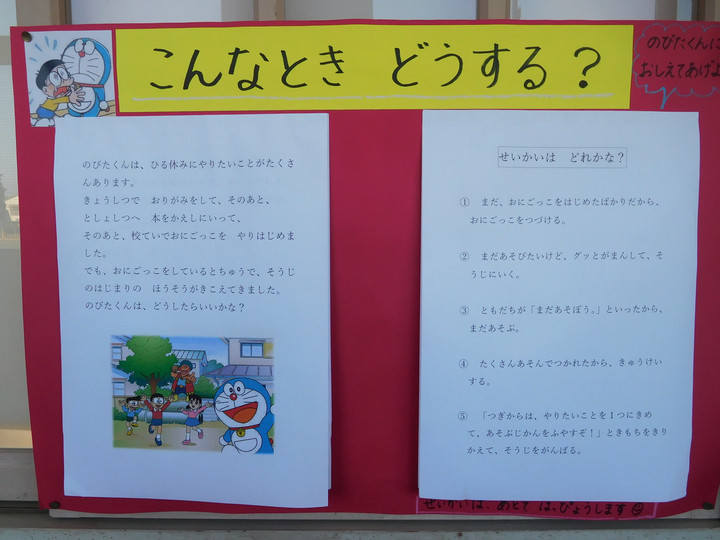 こんなとき どうする？
のびたくんに
おしえてあげよ
のびたくんは、ひる休みにやりたいことがたくさ
んあります。
きょうしつで　おりがみをして、そのあと、
としょしつへ　本をかえしにいって、
そのあと、校ていでおにごっこを　やりはじめま
した。
でも、おにごっこをしているとちゅうで、そうじ
のはじまりの　ほうそうがきこえてきました。
のびたくんは、どうしたらいいかな？
せいかいは　どれかな？
① まだ、おにごっこをはじめたばかりだから、
おにごっこをつづける。
② まだあそびたいけど、グッとがまんして、そ
うじにいく。
③ ともだちが「まだあそぼう。」といったから、
まだあそぶ。
④ たくさんあそんでつかれたから、きゅうけい
する。
⑤ 「つぎからは、やりたいことを１つにきめ
て、あそぶじかんをふやすぞ！」ときもちをきり
かえて、そうじをがんばる。
せいかいは、あとで はっぴょうします